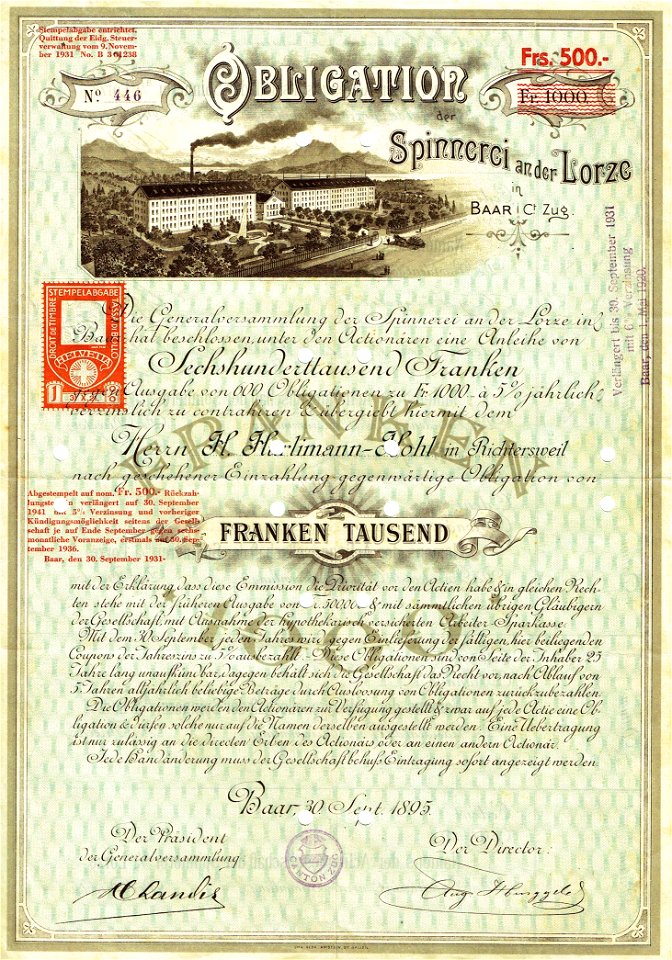 Stempelabgabe entrichtet,
Quittung der Eidg. Steuer-
verwaltung vom 9. Novem-
ber 1931 No. B 3 61238
Nº 446
OBLIGATION
Frs. 500.-
Fr. 1000.
der
Spinnerei an der Lorze
in
BAAR i Ct Zug.
Verlängert bis 30. September 1931
mit 6% Verzinsung
Baar, den 1. Mai 1920.
STEMPELABGABE
DROIT DE TIMBRE
TASSA DI BOLLO
HELVETIA
1
Die Generalversammlung der Spinnerei an der Lorze in
Baar hat beschlossen, unter den Actionären eine Anleihe von
Sechshunderttausend Franken
gegen Ausgabe von 600 Obligationen zu Fr 1000.- à 5% jährlich
verzinslich zu contrahiren & übergiebt hiermit dem
Herrn H. Hürlimann-Hohl in Richtersweil
nach geschehener Einzahlung gegenwärtige Obligation von
FRANKEN
Abgestempelt auf nom. Fr. 500.- Rückzah-
lungste n verlängert auf 30. September
1941 5% Verzinsung und vorheriger
Kündigungsmöglichkeit seitens der Gesell-
schaft je auf Ende September sechs-
monatliche Voranzeige, erstmals 30. Sep-
tember 1936.
Baar, den 30. September 1931.
FRANKEN TAUSEND
mit der Erklärung dass diese Emmission die Priorität vor den Actien habe & in gleichen Rech-
ten stehe mit der früheren Ausgabe von Fr. 50000.- & mit sämmtlichen übrigen Gläubigern
der Gesellschaft, mit Ausnahme der hypothekarisch versicherten Arbeiter Sparkasse.
Mit dem 30 September jeden Jahres wird gegen Einlieferung der fälligen, hier beiliegenden
Coupons der Jahreszins zu 5% ausbezahlt. Diese Obligationen sind von Seite der Inhaber 25
Jahre lang unaufkündbar, dagegen behält sich die Gesellschaft das Recht vor, nach Ablauf von
5 Jahren alljährlich beliebige Beträge durch Ausloosung von Obligationen zurückzubezahlen.
Die Obligationen werden den Actionären zur Verfügung gestellt & zwar auf jede Actie eine Ob-
ligation & dürfen solche nur auf die Namen derselben ausgestellt werden. Eine Uebertragung
ist nur zulässig an die directen Erben des Actionärs oder an einen andern Actionär.
Jede Handänderung muss der Gesellschaft behufs Eintragung sofort angezeigt werden.
Baar, 30 Sept. 1895.
Der Präsident
der Generalversammlung
Der Director:
CANTON ZUG